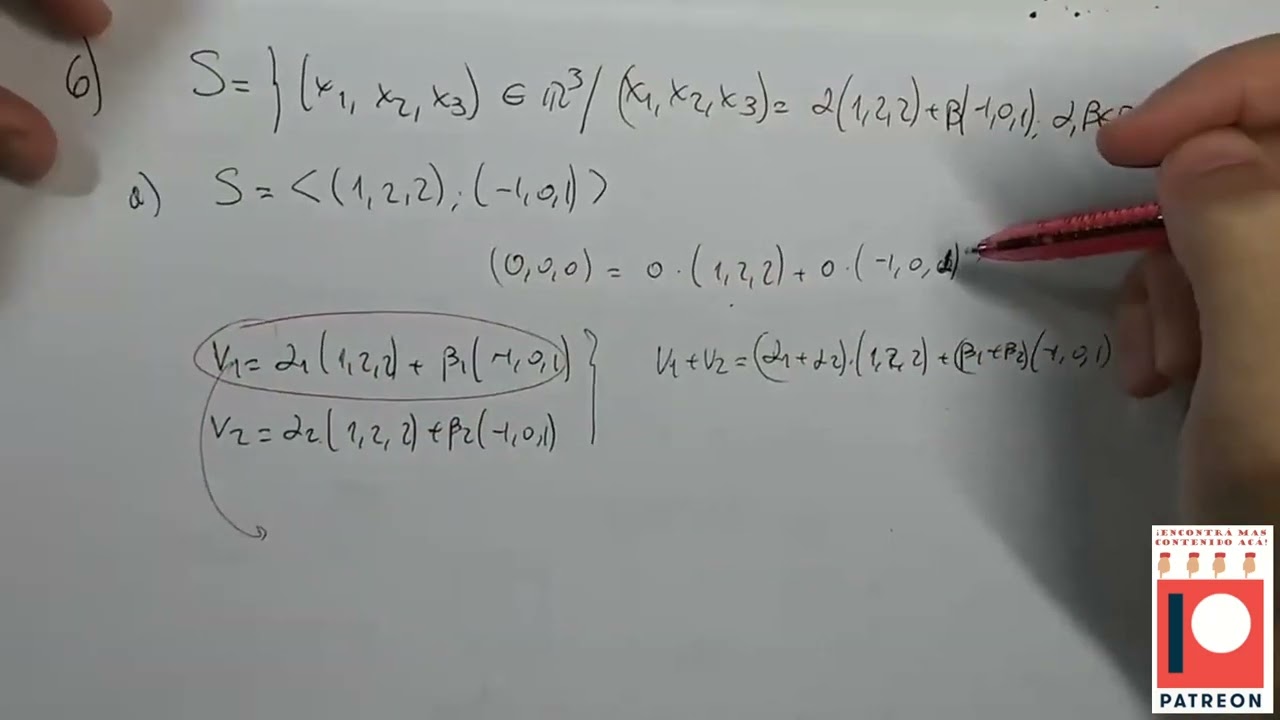 6) S = } (x1, x2, x3) ∈ ℝ³ / (x1, x2, x3) = α(1,2,2) + β(-1,0,1); α, β ∈
a) S = <(1,2,2); (-1,0,1)>
(0,0,0) = 0·(1,2,2) + 0·(-1,0,1)
V1 = α1(1,2,2) + β1(-1,0,1) } V1 + V2 = (α1+α2)·(1,2,2) + (β1+β2)(-1,0,1)
V2 = α2(1,2,2) + β2(-1,0,1)
¡ENCONTRÁ MAS
CONTENIDO ACÁ!
PATREON